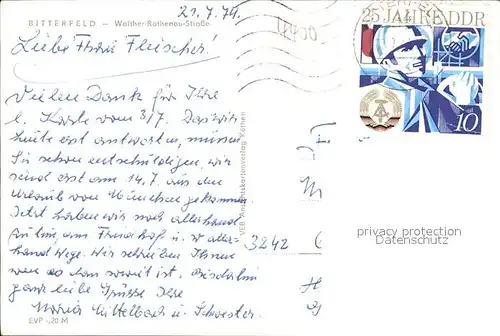 21.7.74.
BITTERFELD – Walther-Rathenau-Straße
Liebe Frau Fleischer!
Vielen Dank für Ihre
l. Karte vom 3/7. Das wir
heute erst antworten, müssen
Sie schon entschuldigen, wir
sind erst am 14.7. aus den
Urlaub von München gekommen.
Jetzt haben wir noch allerhand
zu tun, am Friedhof u. v. aller-
hand Wege. Wir schreiben Ihnen
wen es dan soweit ist. Bis dahin
ganz liebe Grüsse Ihre
Maria Mittelbach u. Schwester.
EVP -,20 M
VEB Ansichtskartenverlag Köthen
25 JAHRE DDR
10
3242
privacy protection
Datenschutz